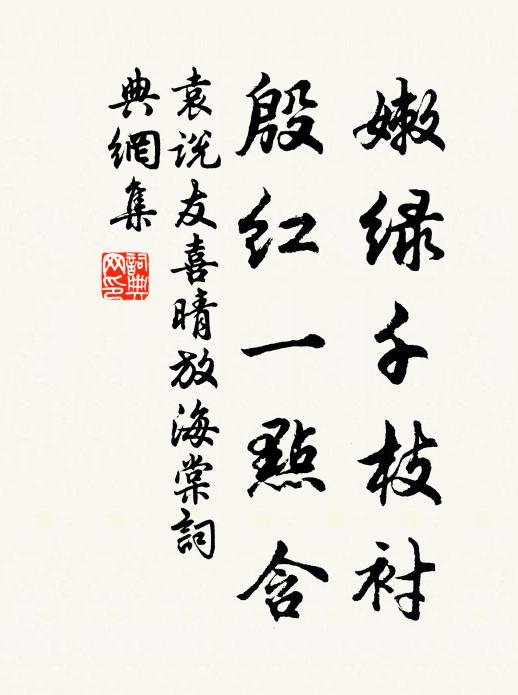 嫩绿千枝衬
殷红一點含
袁说友喜晴放海棠詞
典網集
詞典网印